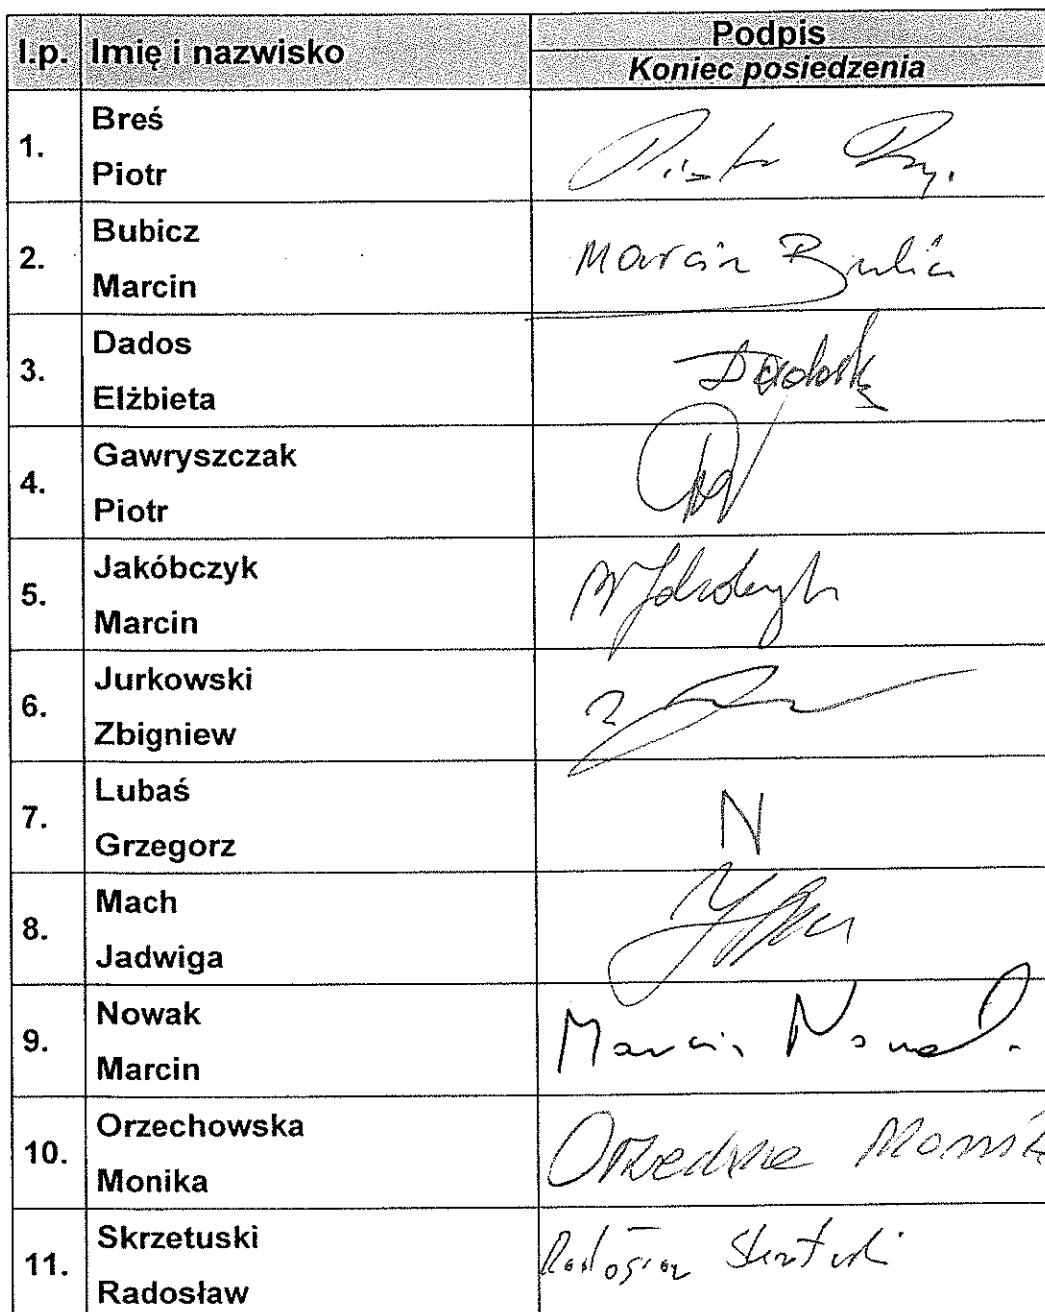 l.p. Imię i nazwisko Podpis
Koniec posiedzenia
1. Breś
Piotr
Piotr
2. Bubicz
Marcin
Marcin
3. Dados
Elżbieta
4. Gawryszczak
Piotr
5. Jakóbczyk
Marcin
6. Jurkowski
Zbigniew
7. Lubaś
Grzegorz
N
8. Mach
Jadwiga
9. Nowak
Marcin
Marcin Nowak
10. Orzechowska
Monika
Monika
11. Skrzetuski
Radosław